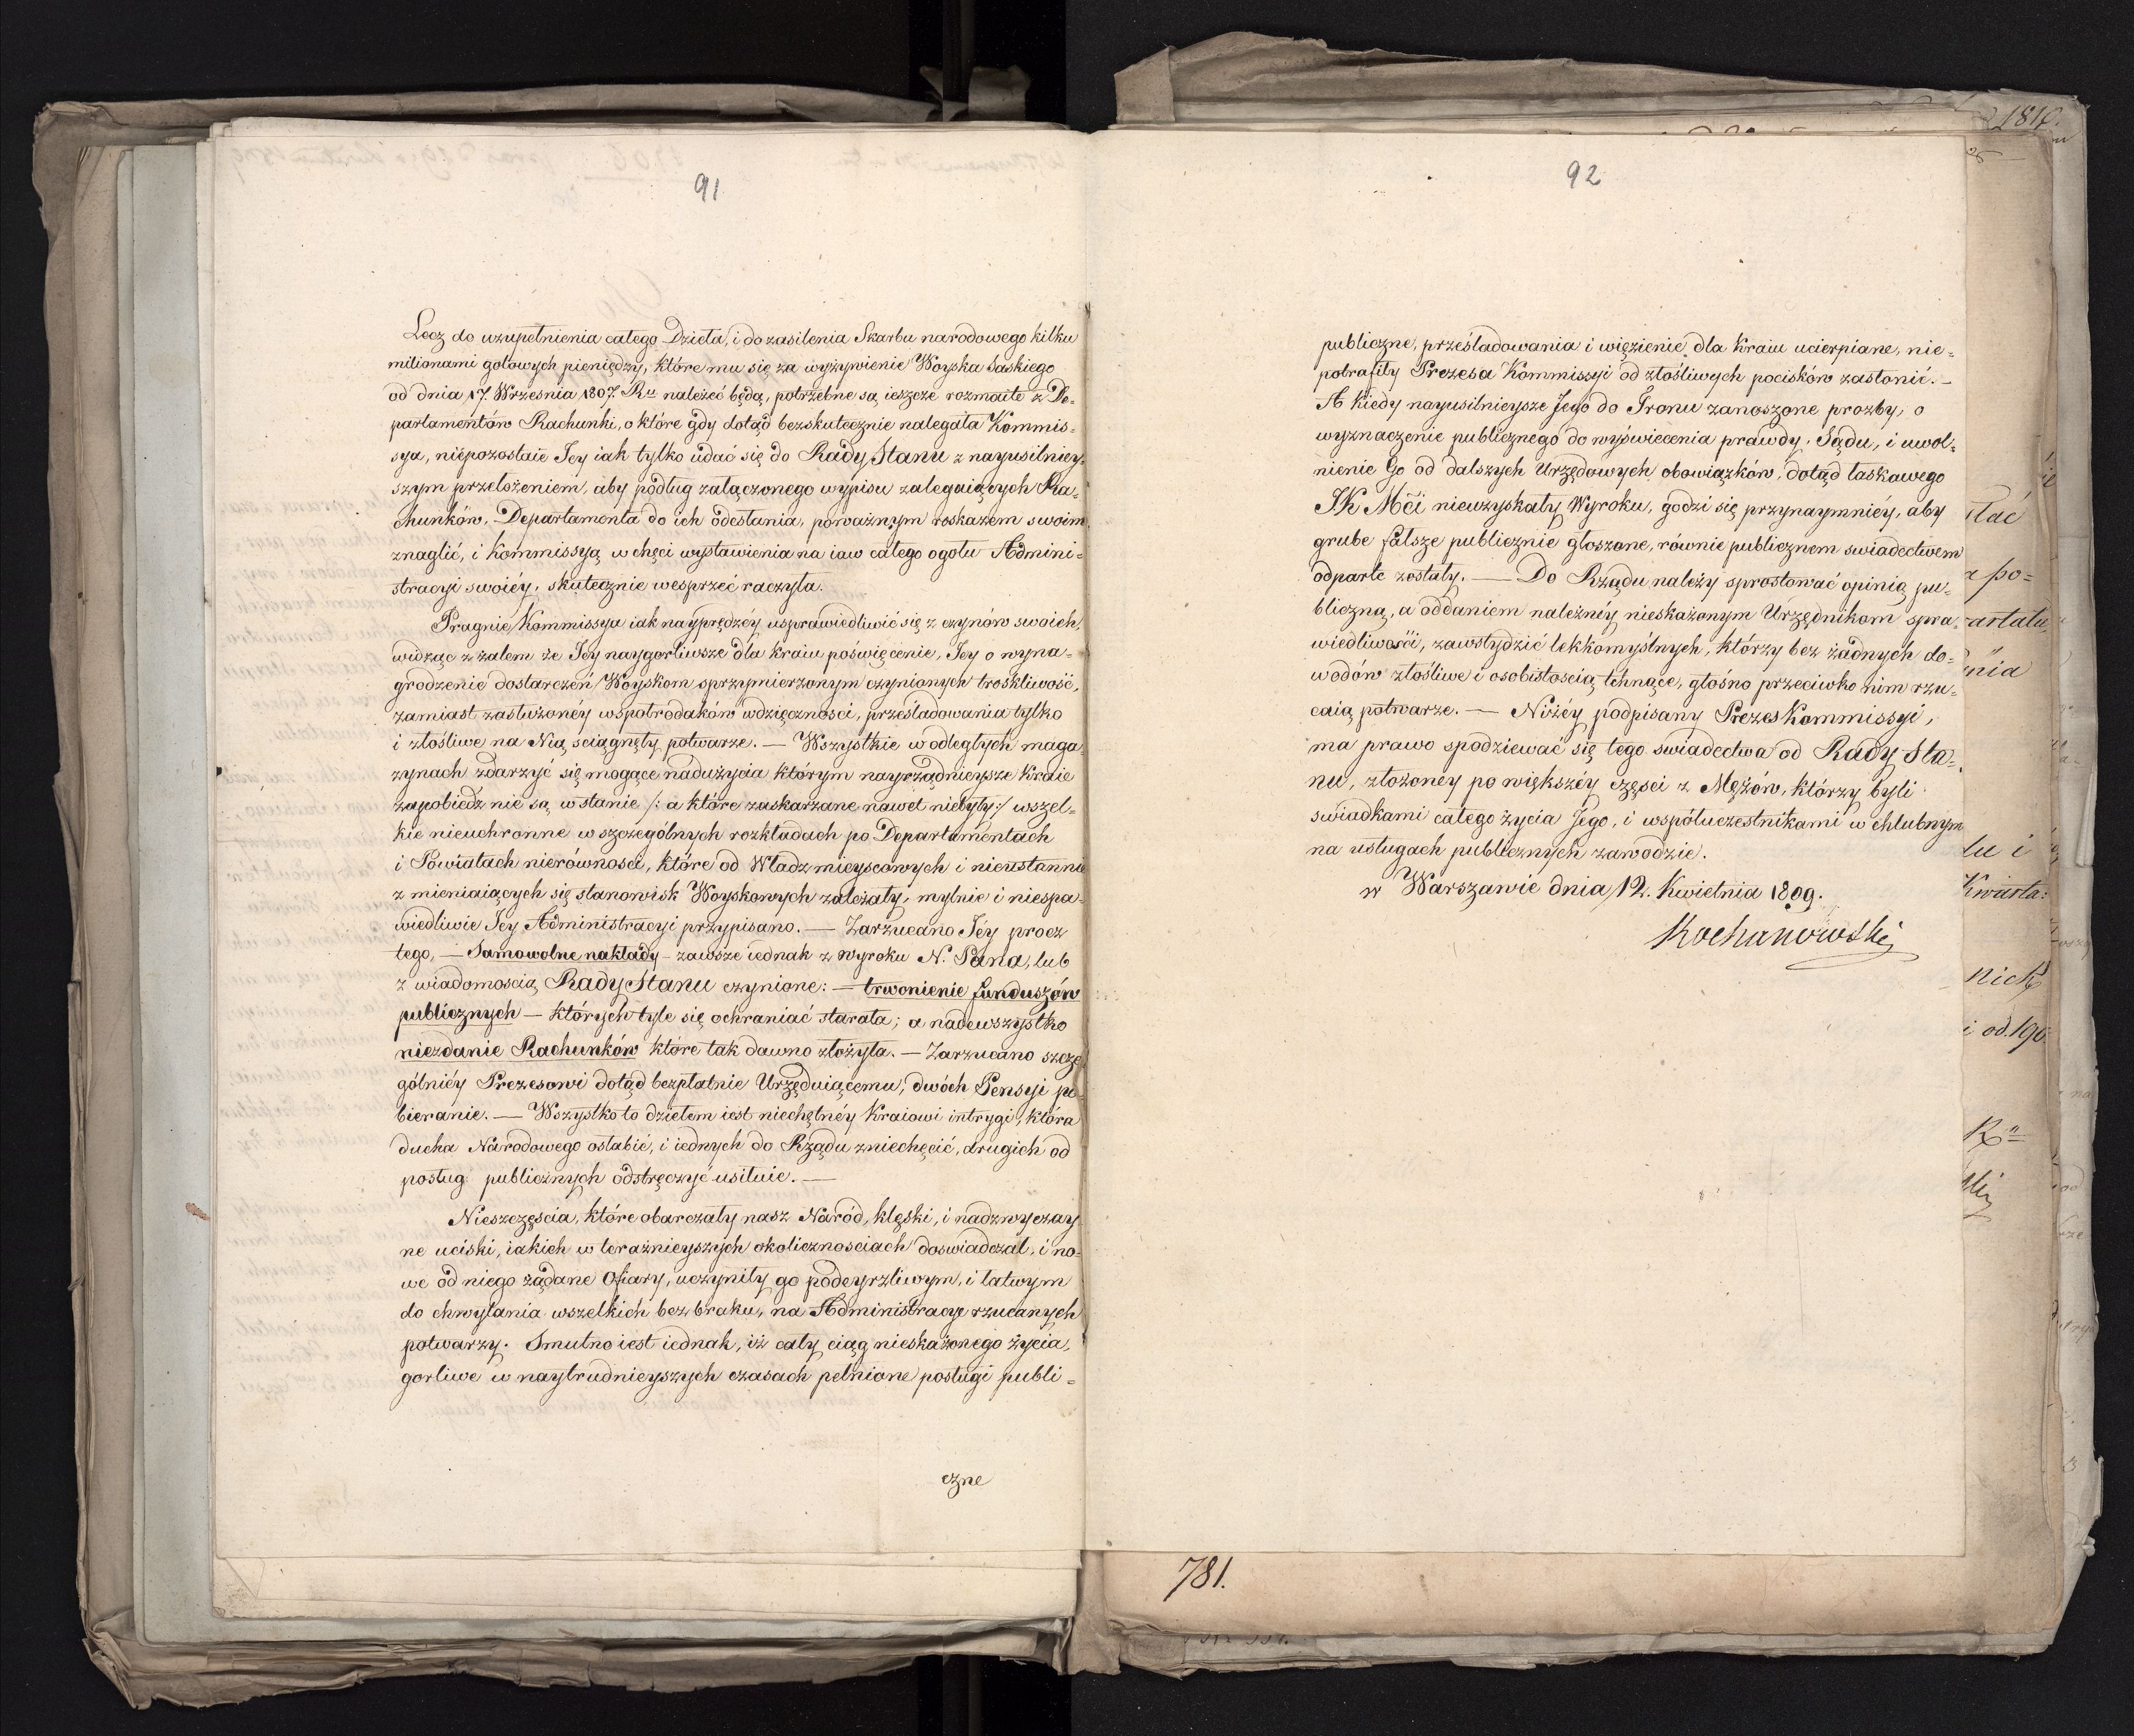 91
Lecz do uzupełnienia całego Dzieła, i do zasilenia Skarbu narodowego kilku
milionami gotowych pieniędzy, które mu się za wyżywienie Woyska Saskiego
od dnia 17. Września 1807. Ru należeć będą, potrzebne są ieszcze rozmaite z De=
partamentów Rachunki, o które gdy dotąd bezskutecznie nalegała Kommis=
sya, niepozostaie Jey iak tylko udać się do Rady Stanu z nayusilniey=
szym przełożeniem, aby podług załączonego wypisu zalegaiących Ra=
chunków, Departamenta do ich odesłania, poważnym roskazem swoim
znaglić, i Kommissyą w chęci wystawienia na iaw całego ogołu Admini=
stracyi swoiéy, skutecznie wesprzeć raczyła.
Pragnie Kommissya iak nayprędzéy usprawiedliwić się z czynów swoich,
widząc z żalem że Jey naygorliwsze dla kraiu poświęcenie, Jey o wyna=
grodzenie dostarczeń Woyskom sprzymierzonym czynionych troskliwość,
zamiast zasłużonéy wspołrodaków wdzięczności, prześladowania tylko
i złośliwe na Nią sciągnęły potwarze. — Wszystkie w odległych maga=
zynach zdarzyć się mogące nadużycia którym nayrządnieysze Kraie
zapobiedz nie są w stanie /: a które zaskarżane nawet niebyły :/ wszel=
kie nieuchronne w szczególnych rozkładach po Departamentach
i Powiatach nierówności, które od Władz mieyscowych i nieustannie
zmieniaiących się stanowisk Woyskowych zależały, mylnie i niespa=
wiedliwie Jey Administracyi przypisano. — Zarzucano Jéy procz
tego, — Samowolne nakłady — zawsze iednak z wyroku N. Pana, lub
z wiadomością Rady Stanu czynione: — trwonienie funduszów
publicznych — których tyle się ochraniać starała; a nadewszystko
niezdanie Rachunków które tak dawno złożyła. — Zarzucano szcze
gólniéy Prezesowi dotąd bezpłatnie Urzęduiącemu, dwóch Pensyi po
bieranie. — Wszystko to dziełem iest niechętnéy Kraiowi intrygi, która
ducha Narodowego osłabić, i iednych do Rządu zniechęcić, drugich od
posług publicznych odstręczyć usiłuie. —
Nieszczęścia, które obarczały nasz Naród, klęski, i nadzwyczay
ne uciski, iakich w teraźnieyszych okolicznościach doswiadczał, i no=
we od niego żądane Ofiary, uczyniły go podeyrzliwym, i łatwym
do chwytania wszelkich bez braku, na Administracye rzucanych
potwarzy. Smutno iest iednak, iż cały ciąg nieskażonego życia,
gorliwe w naytrudnieyszych czasach pełnione posługi publi=
czne
92
publiczne, prześladowania i więzienie dla Kraiu ucierpiane, nie=
potrafiły Prezesa Kommissyi od złośliwych pocisków zasłonić. —
A kiedy nayusilnieysze Jego do Tronu zanoszone prozby, o
wyznaczenie publicznego do wyświecenia prawdy, Sądu, i uwol=
nienie Go od dalszych Urzędowych obowiązków, dotąd łaskawego
JK Mći nieuzyskały Wyroku, godzi się przynaymniéy, aby
grube fałsze publicznie głoszone, równie publicznem swiadectwem
odparte zostały. — Do Rządu należy sprostować opinią pu=
bliczną, a oddaniem należnéy nieskażonym Urzędnikom spra=
wiedliwości, zawstydzić lekkomyślnych, którzy bez żadnych do=
wodów złośliwe i osobistością tchnące, głośno przeciwko nim rzu=
caią potwarze. — Niżéy podpisany Prezes Kommissyi,
ma prawo spodziewać się tego swiadectwa od Rady Sta=
nu, złożoney po większéy części z Mężów, którzy byli
swiadkami całego życia Jego, i współuczestnikami w chlubnym
na usługach publicznych zawodzie.
w Warszawie dnia 12. Kwietnia 1809.
Kochanowski
781.